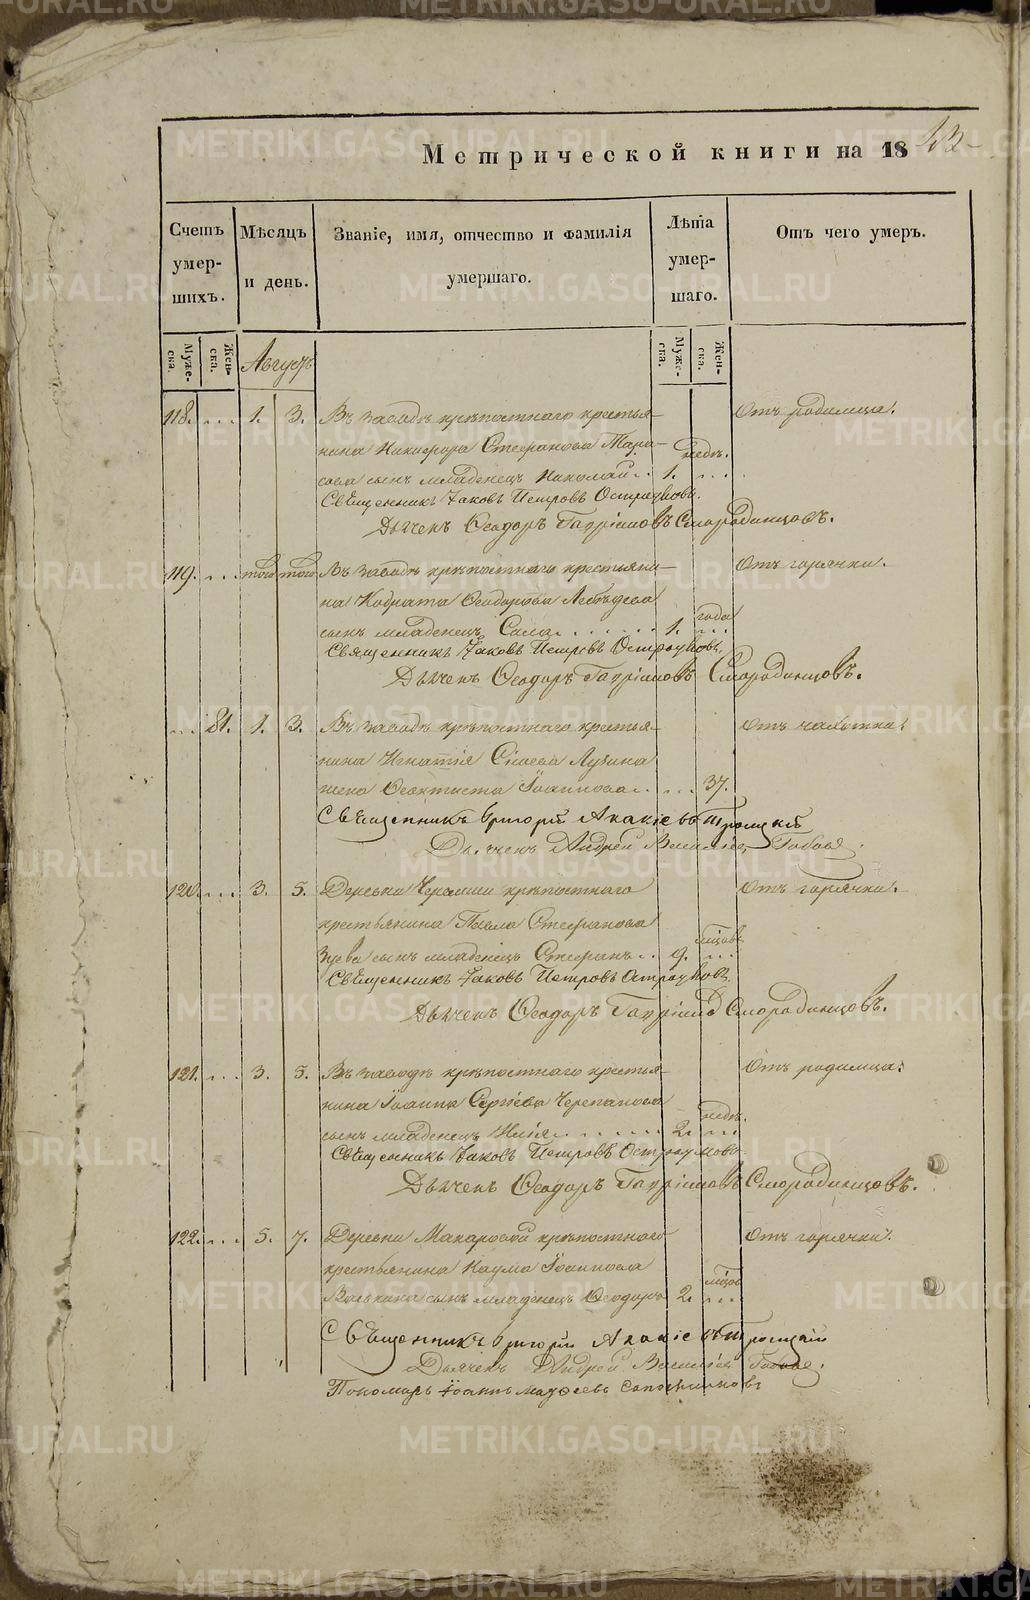 Метрической книги на 18
Счетъ умер- шихъ.
Мѣсяцъ и день.
Званіе, имя, отчество и фамилія умершаго.
Лѣта умер- шаго.
Отъ чего умеръ.
Муже- ска.
Жен- ска.
Августъ
Муже- ска.
Жен- ска.
118. ... 1. 3. Въ заводѣ крѣпостнаго крестья- Отъ родимца.
нина Никифора Стефанова Тара- недѣ.
сова сынъ младенецъ Николай .. 1. ...
Священникъ Іаковъ Петровъ Остроумовъ.
Дьячекъ Ѳеодоръ Гавріиловъ Смородинцовъ.
119. ... того того Въ заводѣ крѣпостнаго крестьяни- Отъ горячки.
на Кодрата Ѳеодорова Лебѣдева года
сынъ младенецъ Сава 1. ...
Священникъ Іаковъ Петровъ Остроумовъ.
Дьячекъ Ѳеодоръ Гавріиловъ Смородинцовъ.
... 81. 1. 3. Въ заводѣ крѣпостнаго крестья- Отъ чахотки.
нина Игнатія
жена Ѳеоктиста Іоаннова 37.
Священникъ Григорій Акакіевъ Троицкій
Дьячекъ Андрей
120. ... 3. 5. Деревни крѣпостнаго Отъ горячки.
крестьянина Павла Стефанова мѣсяцовъ
Зуева сынъ младенецъ Стефанъ .. 9. ...
Священникъ Іаковъ Петровъ Остроумовъ.
Дьячекъ Ѳеодоръ Смородинцовъ.
121. ... 3. 5. Въ заводѣ крѣпостнаго крестья- Отъ родимца.
нина Іоанна Сергіева Черепанова недѣ.
сынъ младенецъ Илія 2. ...
Священникъ Іаковъ Петровъ Остроумовъ.
Дьячекъ Ѳеодоръ Гавріиловъ Смородинцовъ.
122. ... 5. 7. Деревни Макаровой крѣпостнаго Отъ горячки.
крестьянина Наума Іоаннова
сынъ младенецъ Ѳеодоръ 2. ...
Священникъ Григорій Акакіевъ Троицкій
Дьячекъ Андрей
Пономарь Іоаннъ
METRIKI.GASO-URAL.RU